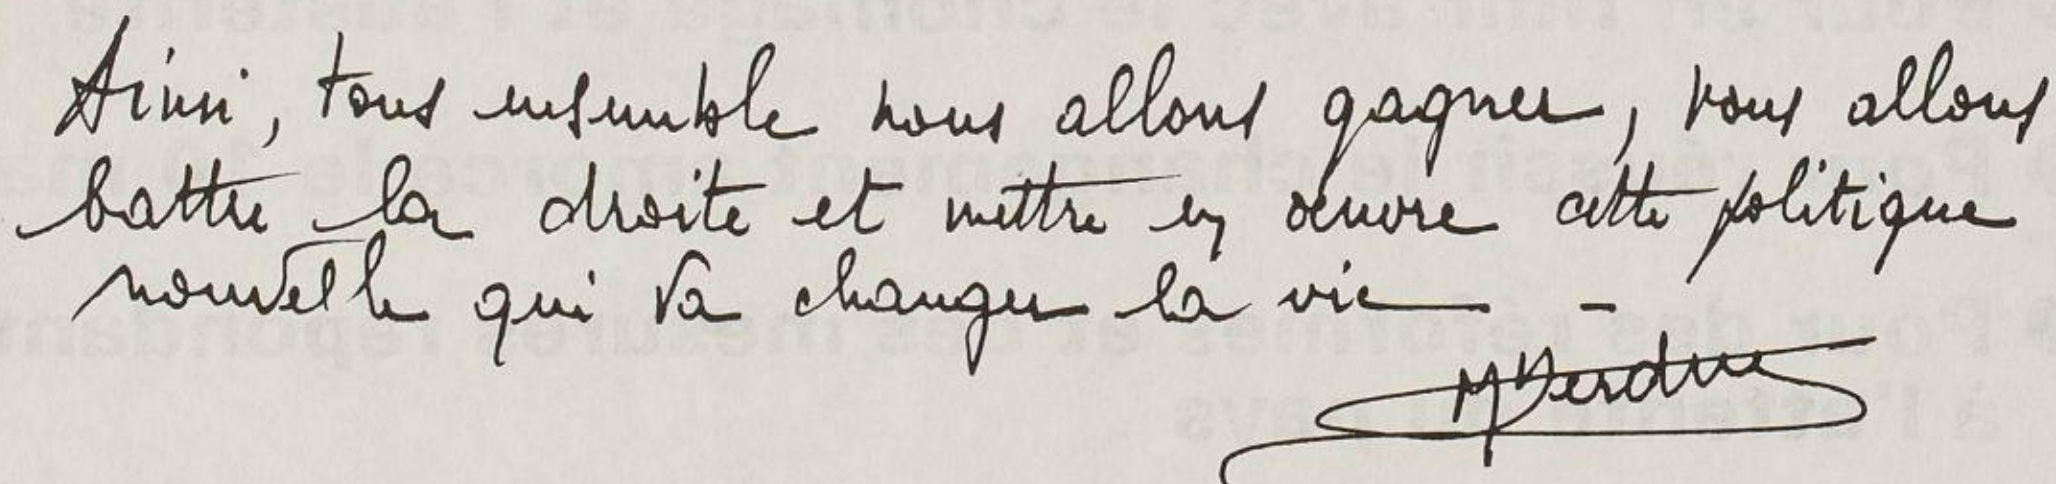 Ainsi, tous ensemble nous allons gagner, nous allons
battre la droite et mettre en œuvre cette politique
nouvelle qui va changer la vie -